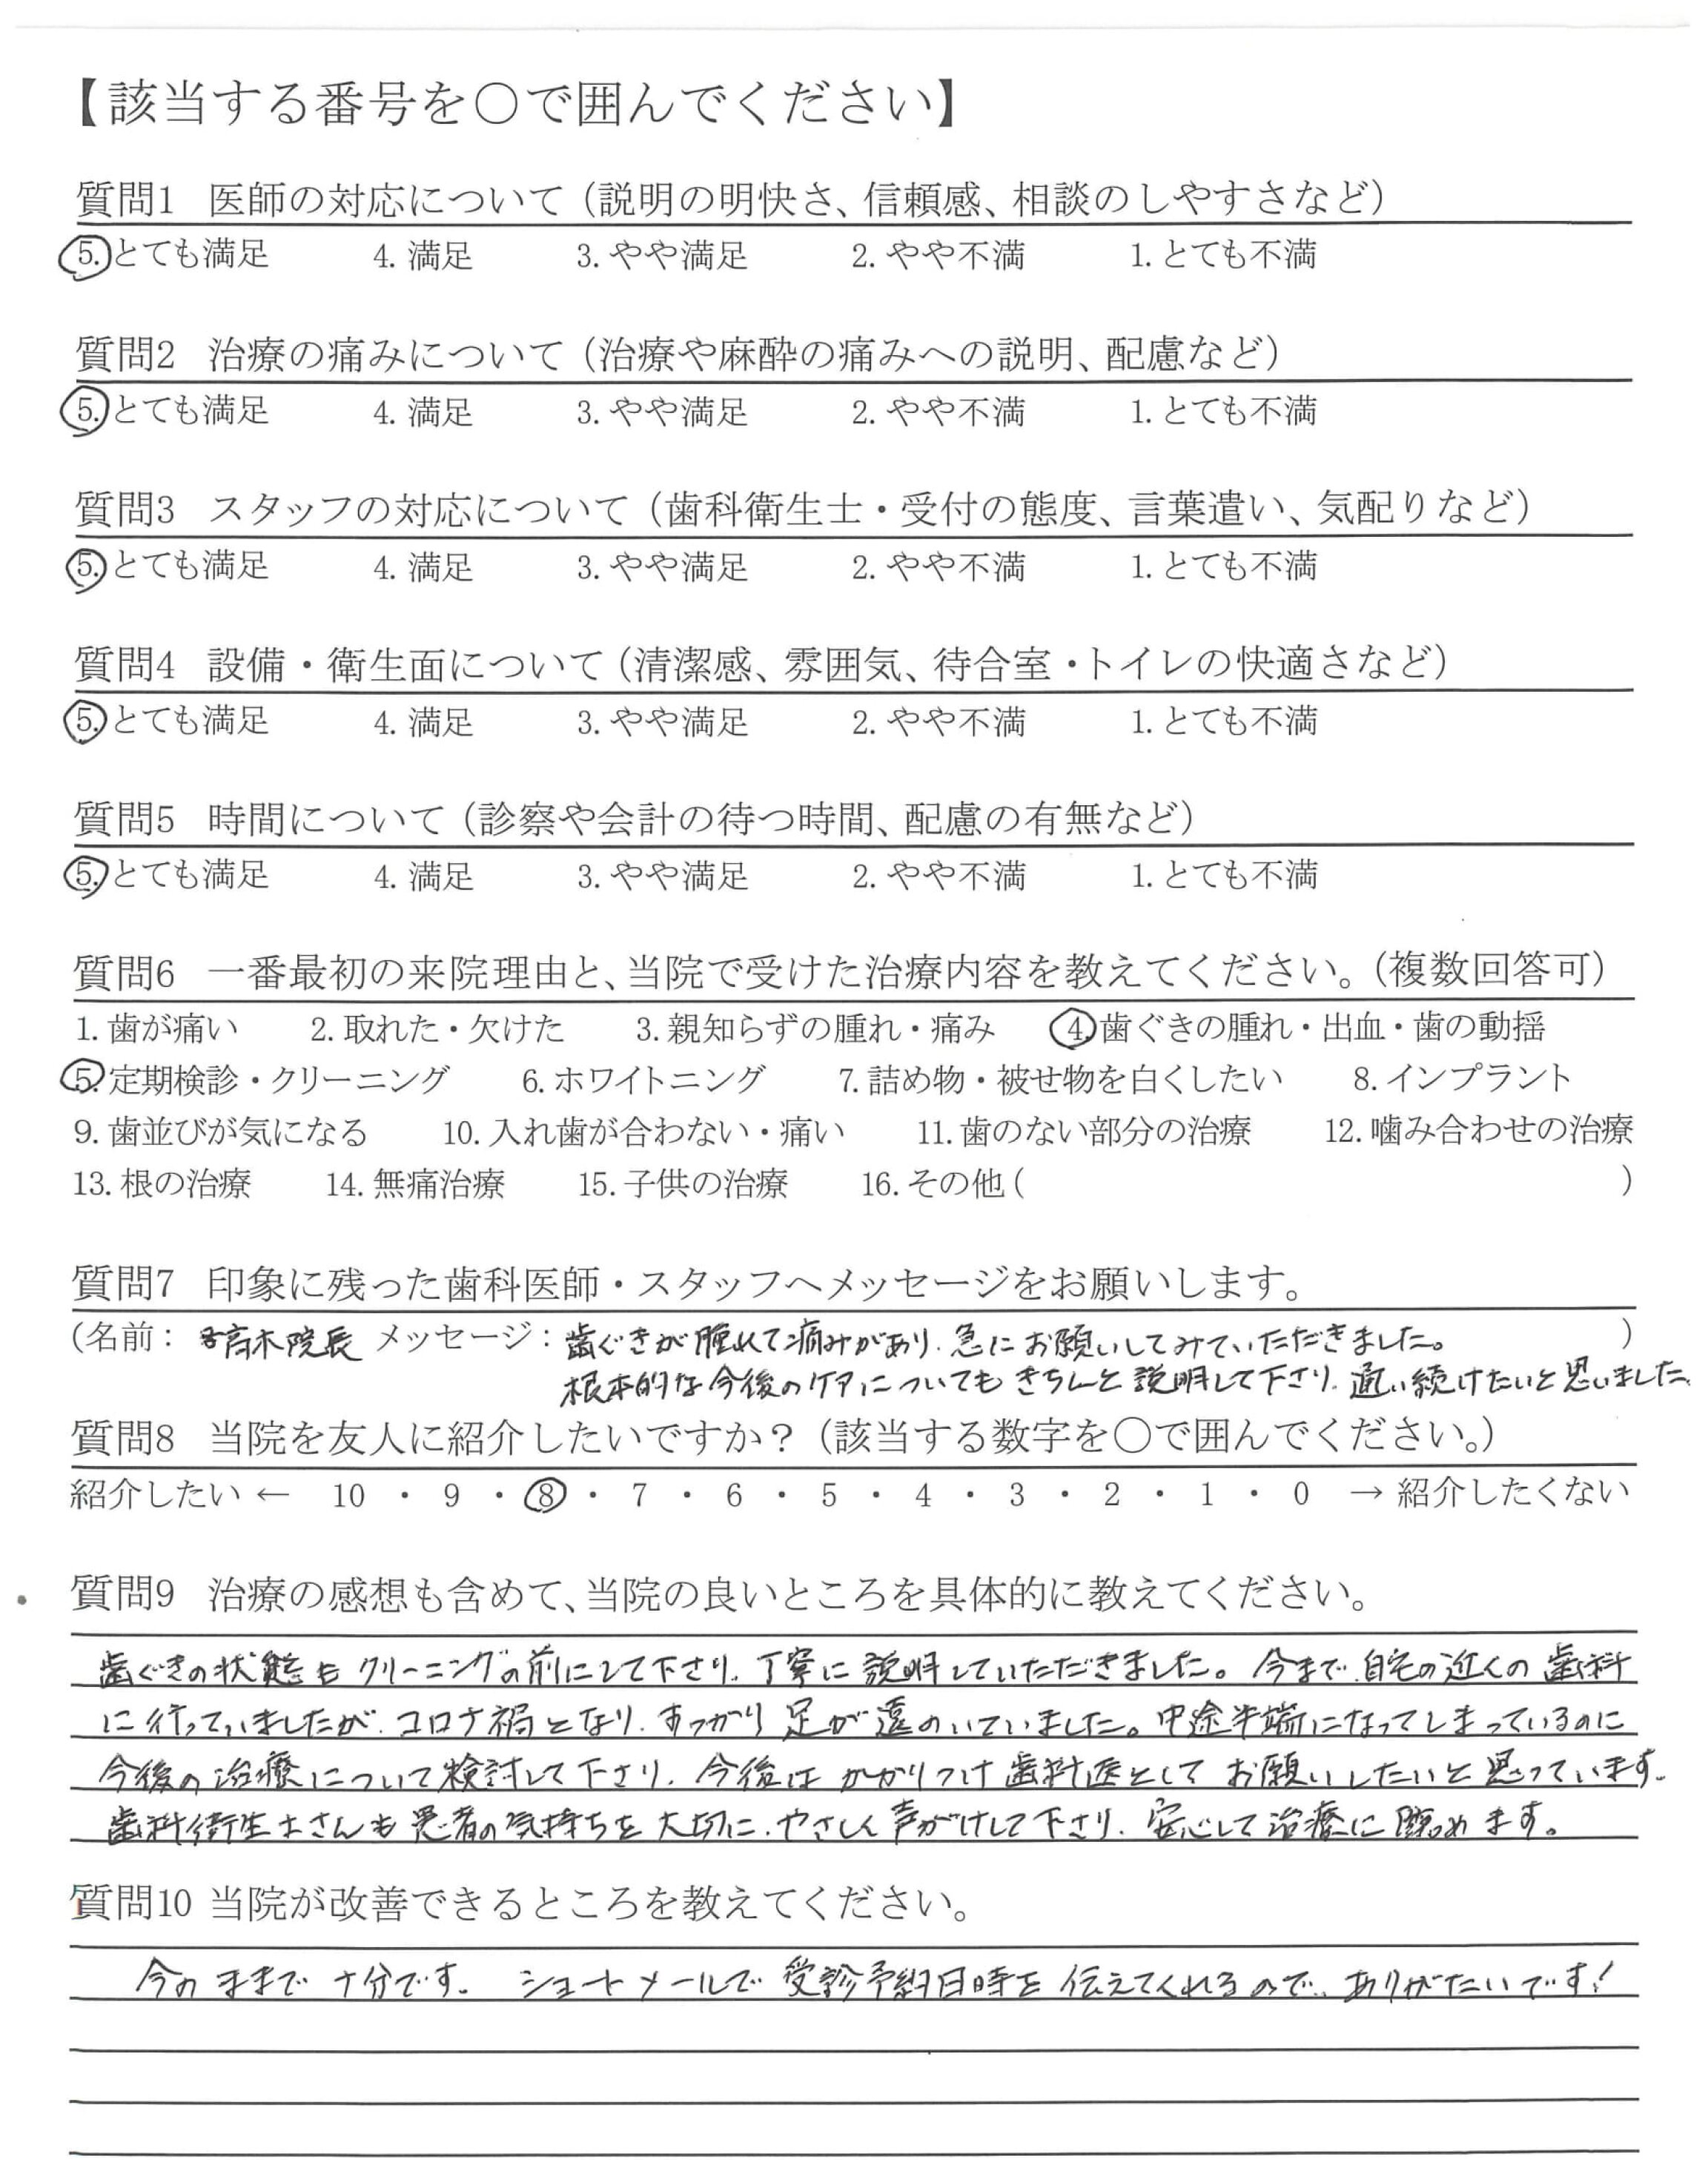 【該当する番号を○で囲んでください】
質問1 医師の対応について（説明の明快さ、信頼感、相談のしやすさなど）
5. とても満足 4. 満足 3. やや満足 2. やや不満 1. とても不満
質問2 治療の痛みについて（治療や麻酔の痛みへの説明、配慮など）
5. とても満足 4. 満足 3. やや満足 2. やや不満 1. とても不満
質問3 スタッフの対応について（歯科衛生士・受付の態度、言葉遣い、気配りなど）
5. とても満足 4. 満足 3. やや満足 2. やや不満 1. とても不満
質問4 設備・衛生面について（清潔感、雰囲気、待合室・トイレの快適さなど）
5. とても満足 4. 満足 3. やや満足 2. やや不満 1. とても不満
質問5 時間について（診察や会計の待つ時間、配慮の有無など）
5. とても満足 4. 満足 3. やや満足 2. やや不満 1. とても不満
質問6 一番最初の来院理由と、当院で受けた治療内容を教えてください。（複数回答可）
1. 歯が痛い 2. 取れた・欠けた 3. 親知らずの腫れ・痛み 4. 歯ぐきの腫れ・出血・歯の動揺
5. 定期検診・クリーニング 6. ホワイトニング 7. 詰め物・被せ物を白くしたい 8. インプラント
9. 歯並びが気になる 10. 入れ歯が合わない・痛い 11. 歯のない部分の治療 12. 噛み合わせの治療
13. 根の治療 14. 無痛治療 15. 子供の治療 16. その他（ ）
質問7 印象に残った歯科医師・スタッフへメッセージをお願いします。
（名前： 高木院長 メッセージ：歯ぐきが腫れて痛みがあり、急にお願いしてみていただきました。 ）
根本的な今後のケアについてもきちんと説明して下さり、通い続けたいと思いました。
質問8 当院を友人に紹介したいですか？（該当する数字を○で囲んでください。）
紹介したい ← 10 ・ 9 ・ 8 ・ 7 ・ 6 ・ 5 ・ 4 ・ 3 ・ 2 ・ 1 ・ 0 → 紹介したくない
質問9 治療の感想も含めて、当院の良いところを具体的に教えてください。
歯ぐきの状態もクリーニングの前にして下さり、丁寧に説明していただきました。今まで、自宅の近くの歯科
に行っていましたが、コロナ禍となり、すっかり足が遠のいていました。中途半端になってしまっているのに
今後の治療について検討して下さり、今後はかかりつけ歯科医としてお願いしたいと思っています。
歯科衛生士さんも患者の気持ちを大切に、やさしく声がけして下さり、安心して治療に臨めます。
質問10 当院が改善できるところを教えてください。
今のままで十分です。 ショートメールで受診予約日時を伝えてくれるので、ありがたいです！